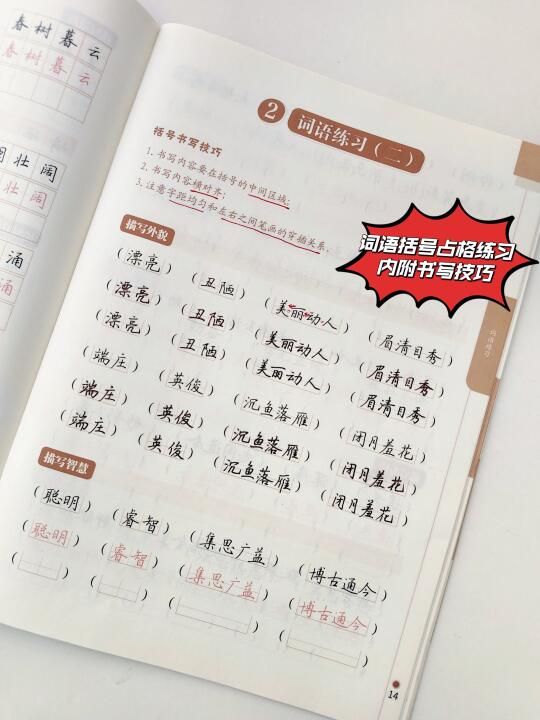 春树暮云
春树暮云
壮阔
壮阔
涌
涌
2 词语练习(二)
括号书写技巧
1. 书写内容要在括号的中间区域;
2. 书写内容横对齐;
3. 注意字距均匀和左右之间笔画的穿插关系。
词语括号占格练习
内附书写技巧
词语练习
描写外貌
(漂亮) (丑陋) (美丽动人) (眉清目秀)
(漂亮) (丑陋) (美丽动人) (眉清目秀)
(漂亮) (丑陋) (美丽动人) (眉清目秀)
(端庄) (英俊) (沉鱼落雁) (闭月羞花)
(端庄) (英俊) (沉鱼落雁) (闭月羞花)
(端庄) (英俊) (沉鱼落雁) (闭月羞花)
描写智慧
(聪明) (睿智) (集思广益) (博古通今)
(聪明) (睿智) (集思广益) (博古通今)
( ) ( ) ( ) ( )
14